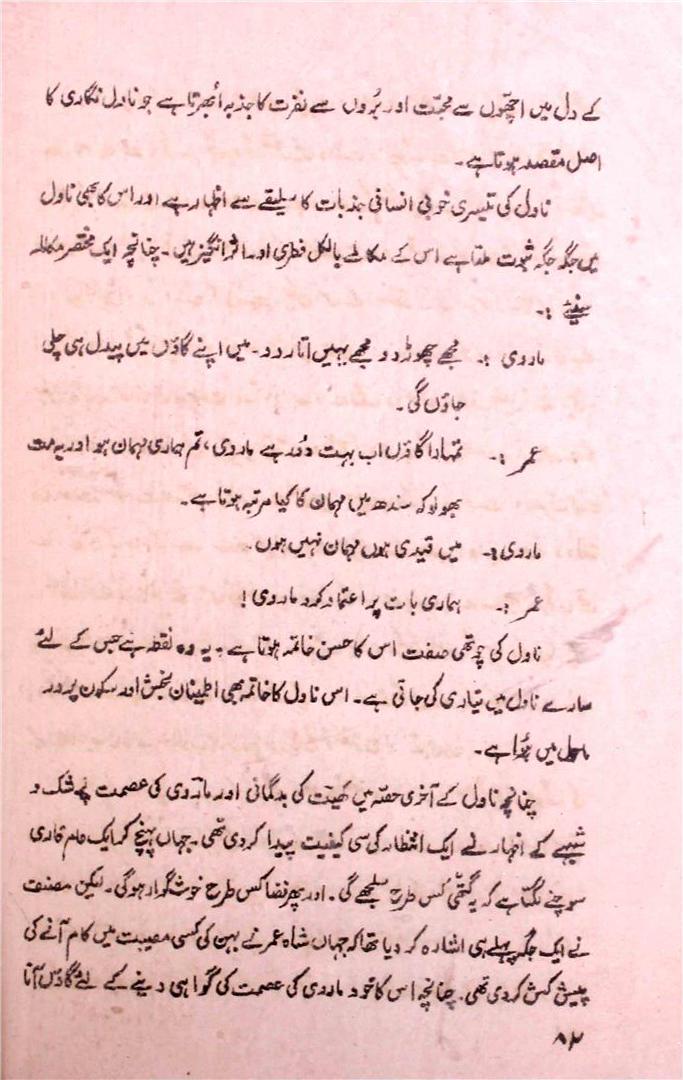 کے دل میں اچھّوں سے محبّت اور بُروں سے نفرت کا جذبہ اُبھرتا ہے جو ناول نگاری کا
اصل مقصد ہوتا ہے۔
ناول کی تیسری خوبی انسانی جذبات کا سلیقے سے اظہار ہے اور اس کا بھی ناول
میں جگہ جگہ ثبوت ملتا ہے اس کے مکالمے بالکل فطری اور اثر انگیز ہیں۔ چنانچہ ایک مختصر مکالمہ
سنیئے :۔
ماروی :۔ مجھے چھوڑ دو مجھے یہیں اتار دو۔ میں اپنے گاؤں میں پیدل ہی چلی
جاؤں گی۔
عمر :۔ تمہارا گاؤں اب بہت دُور ہے ماروی، تم ہماری مہمان ہو اور یہ مت
بھولو کہ سندھ میں مہمان کا کیا مرتبہ ہوتا ہے۔
ماروی :۔ میں قیدی ہوں مہمان نہیں ہوں۔
عمر :۔ ہماری بات پر اعتماد کرو ماروی !
ناول کی چوتھی صفت اس کا حسن خاتمہ ہوتا ہے۔ یہ وہ نقطہ ہے جس کے لئے
سارے ناول میں تیاری کی جاتی ہے۔ اس ناول کا خاتمہ بھی اطینان بخش اور سکون پرور
ماحول میں ہوا ہے۔
چنانچہ ناول کے آخری حصّہ میں کھیت کی بدگمانی اور ماروی کی عصمت پہ شک و
شبہے کے اظہار نے ایک انتظار کی سی کیفیت پیدا کر دی تھی۔ جہاں پہنچ کر ایک عام قاری
سوچنے لگتا ہے کہ یہ گتھی کس طرح سلجھے گی۔ اور پھر فضا کس طرح خوشگوار ہوگی۔ لیکن مصنف
نے ایک جگہ پہلے ہی اشارہ کر دیا تھا کہ جہاں شاہ عمر نے بہن کی کسی مصیبت میں کام آنے کی
پیش کش کر دی تھی۔ چنانچہ اس کا خود ماروی کی عصمت کی گواہی دینے کے لئے گاؤں آنا
۸۲